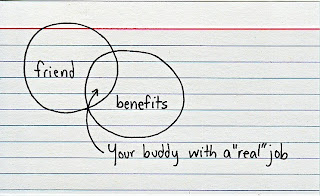 friend
benefits
Your buddy with a "real" job